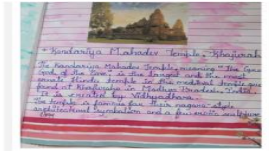 Kandariya Mahadev Temple, Khajurah
The Kandariya Mahadev Temple, meaning "the Great
God of the Cave", is the largest and the most
ornate Hindu temple in the medieval temple group
found at Khajuraho in Madhya Pradesh, India.
It is created by Vidhyadhara.
The temple is famous for their nagara-style
architectural symbolism and a few erotic sculpture